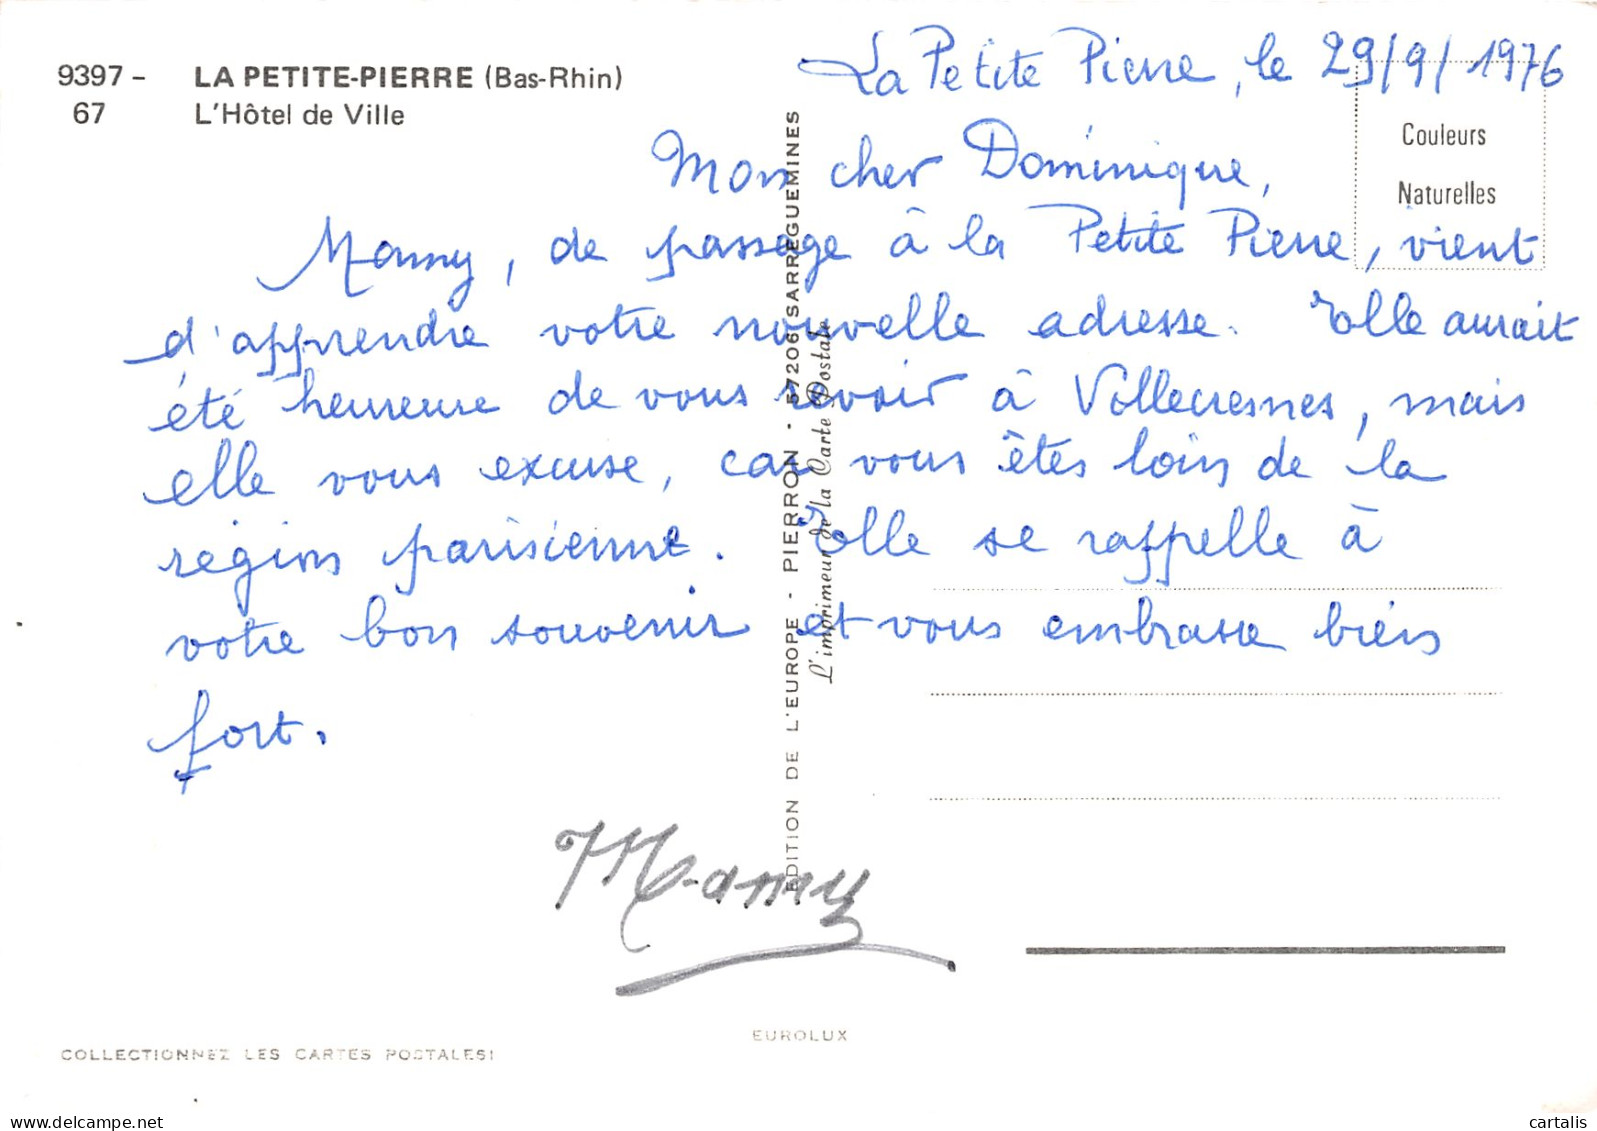 9397 - LA PETITE-PIERRE (Bas-Rhin)
67 L'Hôtel de Ville
La Petite Pierre, le 29/9/1976
Couleurs
Naturelles
Mon cher Dominique,
Mamy, de passage à la Petite Pierre, vient
d'apprendre votre nouvelle adresse. Elle aurait
été heureuse de vous revoir à Vollecresnes, mais
elle vous excuse, car vous êtes loin de la
région parisienne. Elle se rappelle à
votre bon souvenir et vous embrasse bien
fort.
Mamy
EDITION DE L'EUROPE - PIERRON - 57206 SARREGUEMINES
L'imprimeur de la Carte Postale
EUROLUX
COLLECTIONNEZ LES CARTES POSTALES!
cartalis